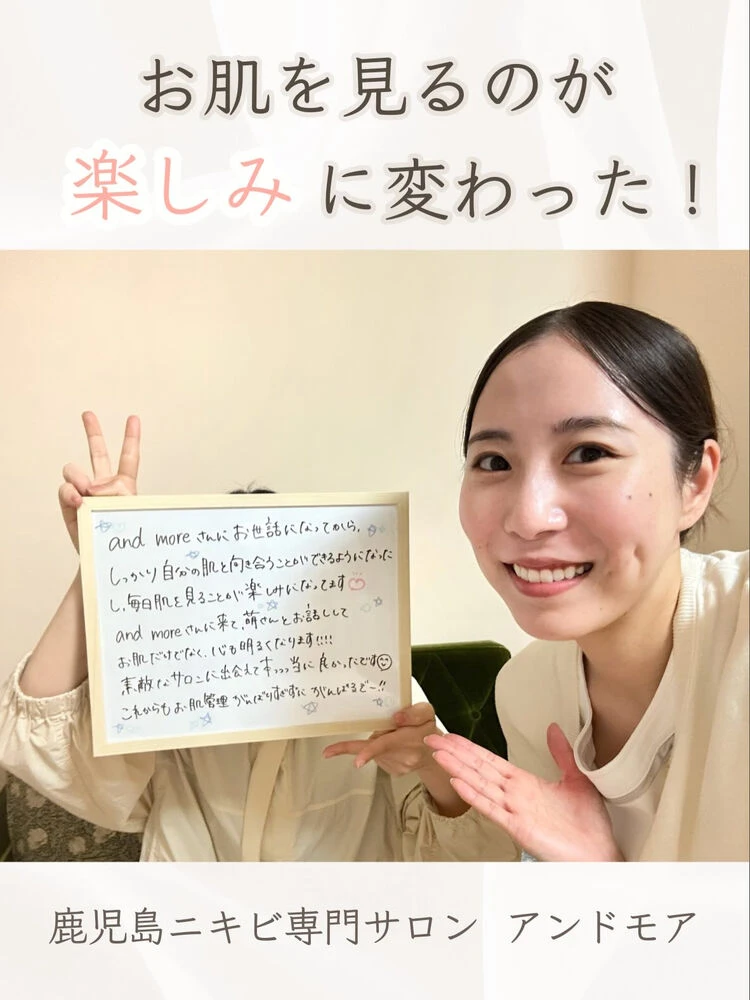 お肌を見るのが
楽しみに変わった！
and moreさんにお世話になってから、
しっかり自分の肌と向き合うことができるようになった
し、毎日肌を見ることが楽しみになってます
and moreさんに来て、萌さんとお話しして
お肌だけでなく、心も明るくなります!!!!
素敵なサロンに出会えて本っっ当に良かったです
これからもお肌管理がんばりすぎずにがんばるぞー!!
鹿児島ニキビ専門サロン アンドモア